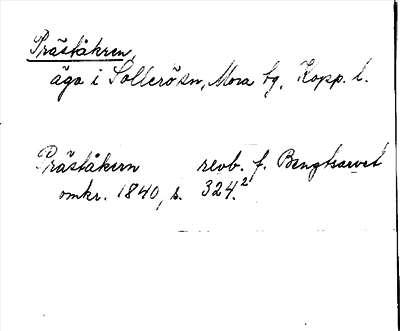 Präståkren,
äga i Sollerösn, Mora tg, Kopp. l.
Präståkern revb. f. Bengtsarvet
omkr. 1840, s. 324.²